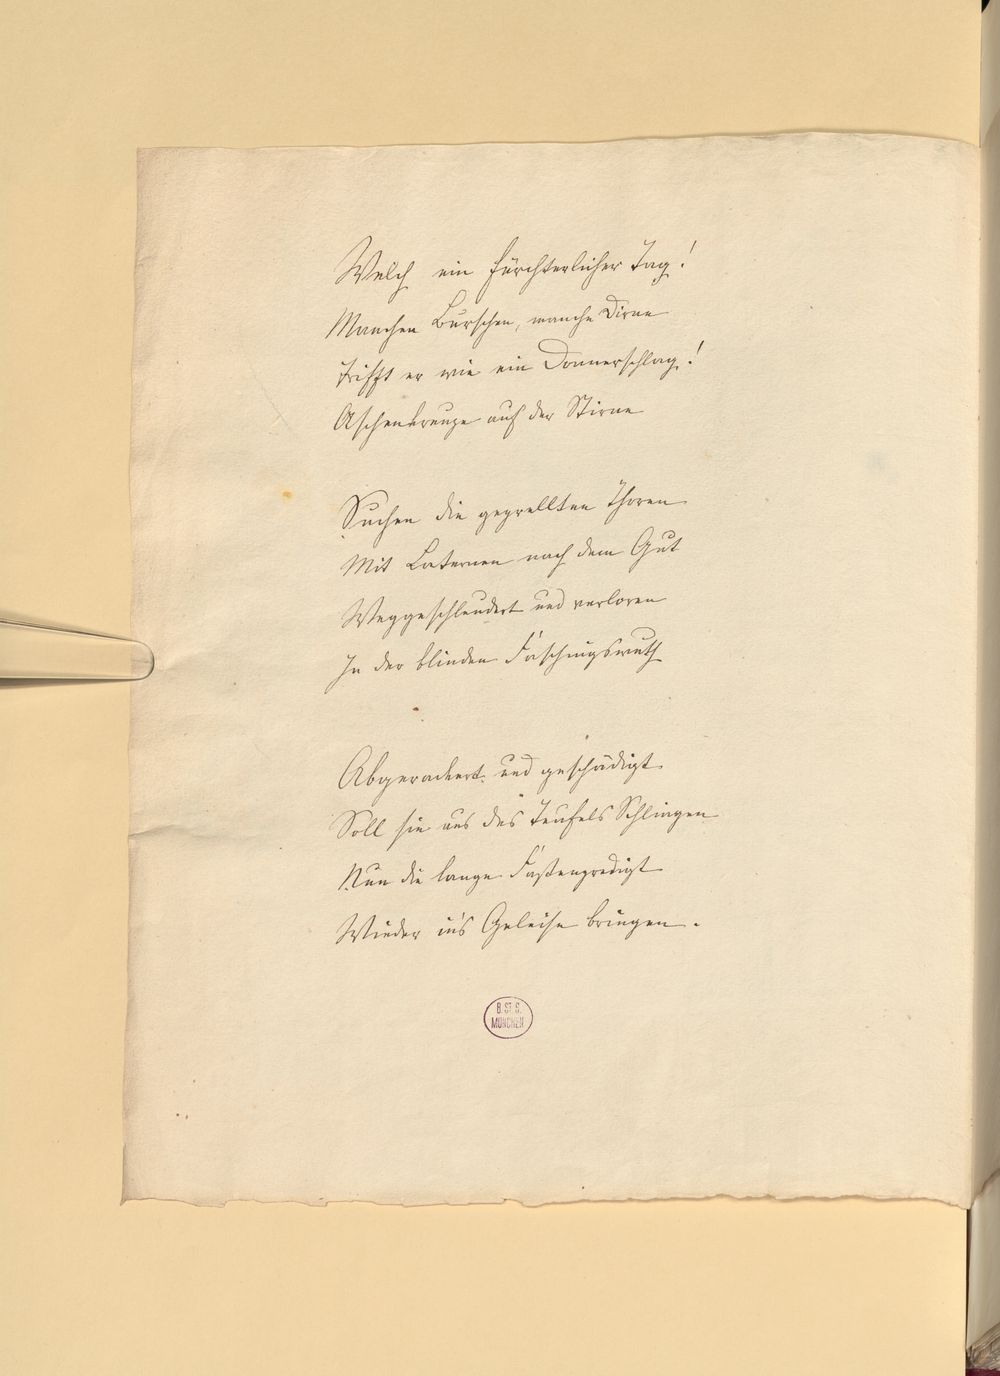 Welch ein fürchterlicher Tag!
Manchen Burschen, manche Dirne
trifft er wie ein Donnerschlag!
Aschenkreuze auf der Stirne
Suchen die geprellten Thoren
Mit Laternen nach dem Gut
Weggeschleudert und verloren
In der blinden Faschingswuth
Abgerackert und geschädigt
Soll sie aus des Teufels Schlingen
Nun die lange Fastenpredigt
Wieder in's Geleise bringen.
B. St. B.
MÜNCHEN